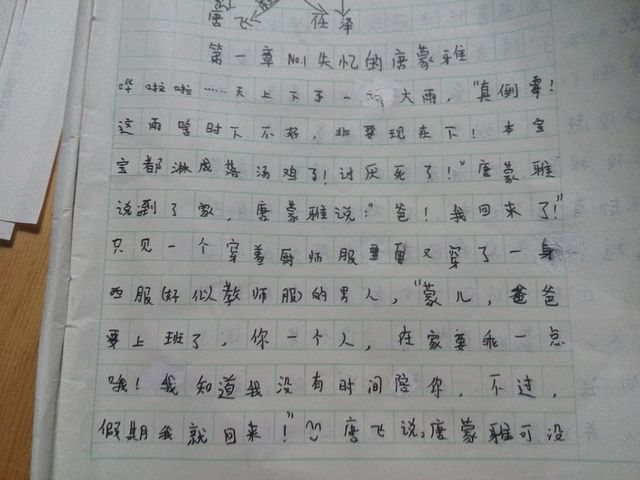 唐飞 任泽
第一章 No.1 失忆的唐蒙雅
哗啦啦……天上下了一场大雨，“真倒霉！
这雨啥时下不好，非要现在下！本宝
宝都淋成落汤鸡了！讨厌死了！”唐蒙雅
说到了家，唐蒙雅说：“爸！我回来了！”
只见一个穿着厨师服里面又穿了一身
西服（好似教师服）的男人，“蒙儿，爸爸
要上班了，你一个人，在家要乖一点
哦！我知道我没有时间陪你，不过，
假期我就回来！”唐飞说。唐蒙雅可没